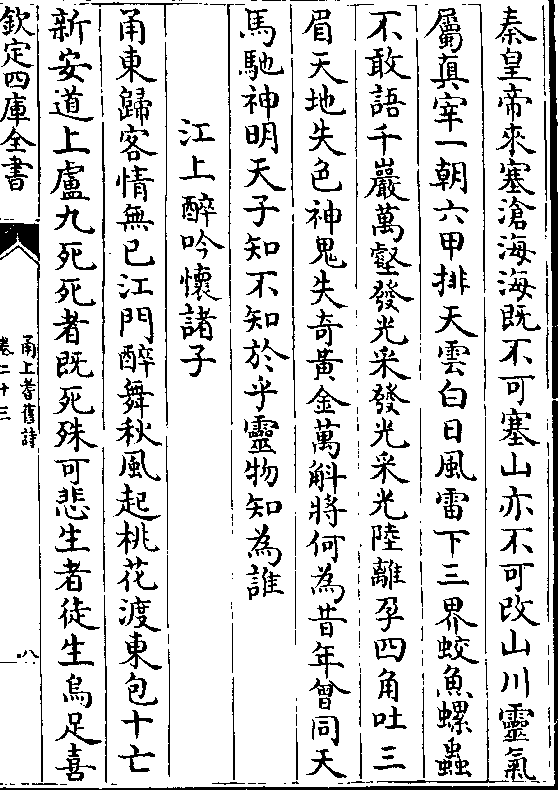 秦皇帝來塞滄海海既不可塞山亦不可改山川靈氣
屬真宰一朝六甲排天雲白日風雷下三界蛟魚螺蟲
不敢語千巖萬壑發光采發光采光陸離孕四角吐三
眉天地失色神鬼失奇黃金萬斛將何為昔年曾同天
馬馳神明天子知不知於乎靈物知為誰
江上醉吟懷諸子
甬東歸客情無已江門醉舞秋風起桃花渡東包十亡
新安道上盧九死死者既死殊可悲生者徒生烏足喜
欽定四庫全書
甬上耆舊詩
卷二十三
八